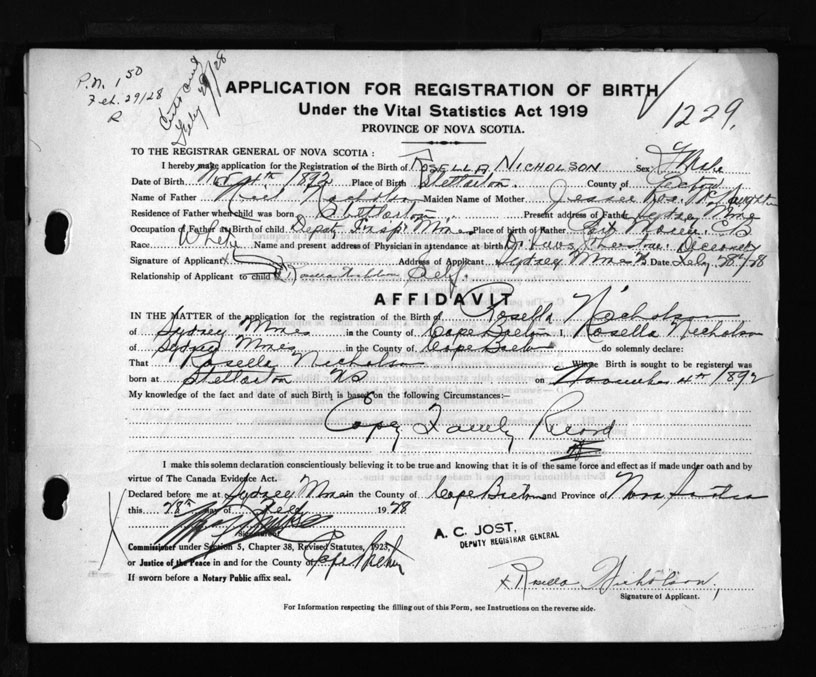 P.N. 150
Feb. 29/28
R
28
APPLICATION FOR REGISTRATION OF BIRTH
1229.
Under the Vital Statistics Act 1919
PROVINCE OF NOVA SCOTIA.
TO THE REGISTRAR GENERAL OF NOVA SCOTIA:
I hereby make application for the Registration of the Birth of ROSELLA NICHOLSON Sex Female
Date of Birth Nov 4th 1892 Place of Birth Stellarton. County of Pictou
Name of Father Nicholson Maiden Name of Mother Jessie
Residence of Father when child was born Stellarton Present address of Father Sydney Mines
Occupation of Father at Birth of child. Deputy Insp. Mines Place of birth of Father C.B
Race White Name and present address of Physician in attendance at birth Dr. Deceased
Signature of Applicant Address of Applicant Sydney Mines Date Feby 28th/28
Relationship of Applicant to child Rosella Nicholson Self.
AFFIDAVIT
IN THE MATTER of the application for the registration of the Birth of Rosella Nicholson
of Sydney Mines in the County of Cape Breton I, Rosella Nicholson
of Sydney Mines in the County of Cape Breton do solemnly declare:
That Rosella Nicholson Whose Birth is sought to be registered was
born at Stellarton NS on November 4th 1892
My knowledge of the fact and date of such Birth is based on the following Circumstances:—
Copy Family Record
I make this solemn declaration conscientiously believing it to be true and knowing that it is of the same force and effect as if made under oath and by
virtue of The Canada Evidence Act.
Declared before me at Sydney Mines in the County of Cape Breton and Province of Nova Scotia
this 28th day of Feby 1928
A. C. JOST,
DEPUTY REGISTRAR GENERAL
Signature of
Commissioner under Section 5, Chapter 38, Revised Statutes, 1923,
or Justice of the Peace in and for the County of Cape Breton
If sworn before a Notary Public affix seal.
x Rosella Nicholson
Signature of Applicant.
For Information respecting the filling out of this Form, see Instructions on the reverse side.